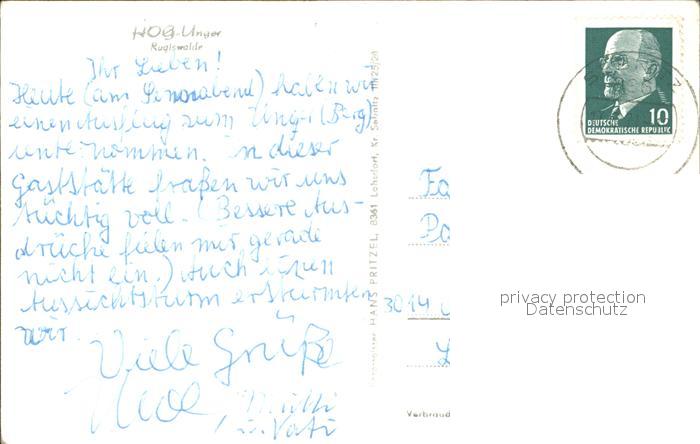 HOG-Unger
Rugiswalde
Ihr Lieben!
Heute (am Sonnabend) haben wir
einen Ausflug zum Unger (Berg)
unternommen. In dieser
Gaststätte fraßen wir uns
tüchtig voll. (Bessere Aus-
drücke fielen mir gerade
nicht ein.) Auch einen
Aussichtsturm erstürmten
wir.
Viele Grüße
Mutti
u. Vati
HANS PRITZEL, 8361 Lohsdorf, Kr. Sebnitz
DEUTSCHE 10
DEMOKRATISCHE REPUBLIK
Fa
Pa
3014
L
privacy protection
Datenschutz
Verbrau